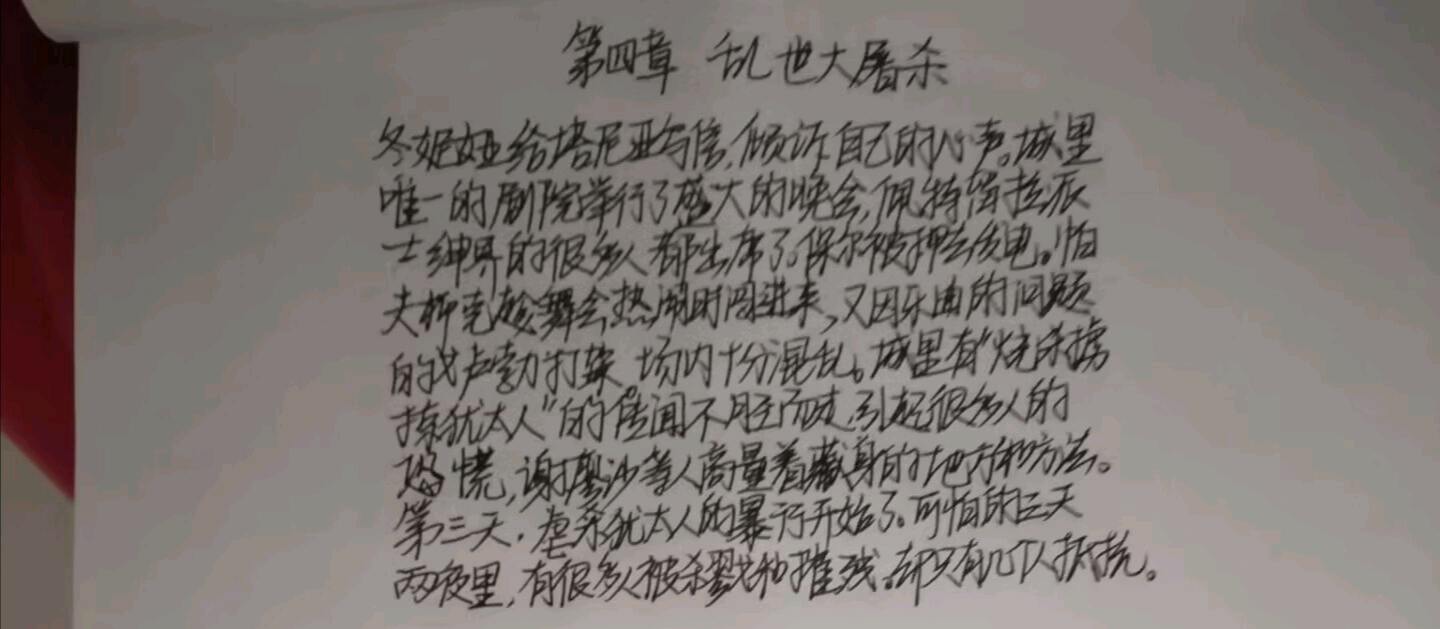 第四章 乱世大屠杀
冬妮娅给塔尼亚写信,倾诉自己的心声。城里
唯一的剧院举行了盛大的晚会,佩特留拉派
士绅界的很多人都出席了。保尔被押去发电。帕
夫柳克趁舞会热闹时闯进来,又因乐曲的问题
的戈卢勃打架。场内十分混乱。城里有“烧杀掳
掠犹太人”的传闻不胫而走,引起很多人的
恐慌,谢廖沙等人商量着藏身的地方和方法。
第三天,虐杀犹太人的暴行开始了。可怕的三天
两夜里,有很多人被杀戮和摧残。却只有几个人抵抗。